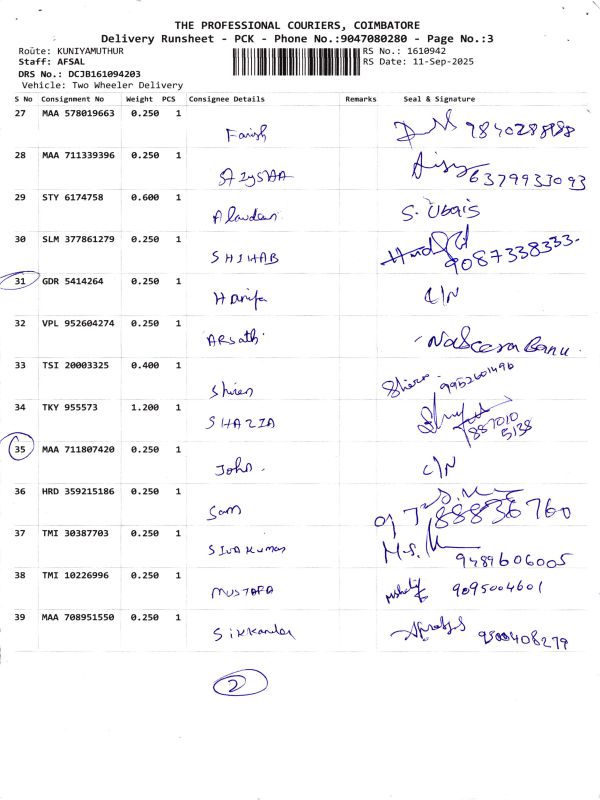 THE PROFESSIONAL COURIERS, COIMBATORE
Delivery Runsheet - PCK - Phone No.:9047080280 - Page No.:3
Route: KUNIYAMUTHUR RS No.: 1610942
Staff: AFSAL RS Date: 11-Sep-2025
DRS No.: DCJB161094203
Vehicle: Two Wheeler Delivery
S No Consignment No Weight PCS Consignee Details Remarks Seal & Signature
27 MAA 578019663 0.250 1
Farish
28 MAA 711339396 0.250 1
6379933093
29 STY 6174758 0.600 1
Alavdeen S. Ubais
30 SLM 377861279 0.250 1
SHIHAB 9087338333
31 GDR 5414264 0.250 1
Hanifa C/N
32 VPL 952604274 0.250 1
ARsath Nabeesa Banu
33 TSI 20003325 0.400 1
Shireen 9952601496
34 TKY 955573 1.200 1
SHAZIA 887010
5138
35 MAA 711807420 0.250 1
John. C/N
36 HRD 359215186 0.250 1
Sam
37 TMI 30387703 0.250 1
SIVA Kumar M.S. 9489606005
38 TMI 10226996 0.250 1
MUSTAFA 9095004601
39 MAA 708951550 0.250 1
Sikkander 9500408279
2